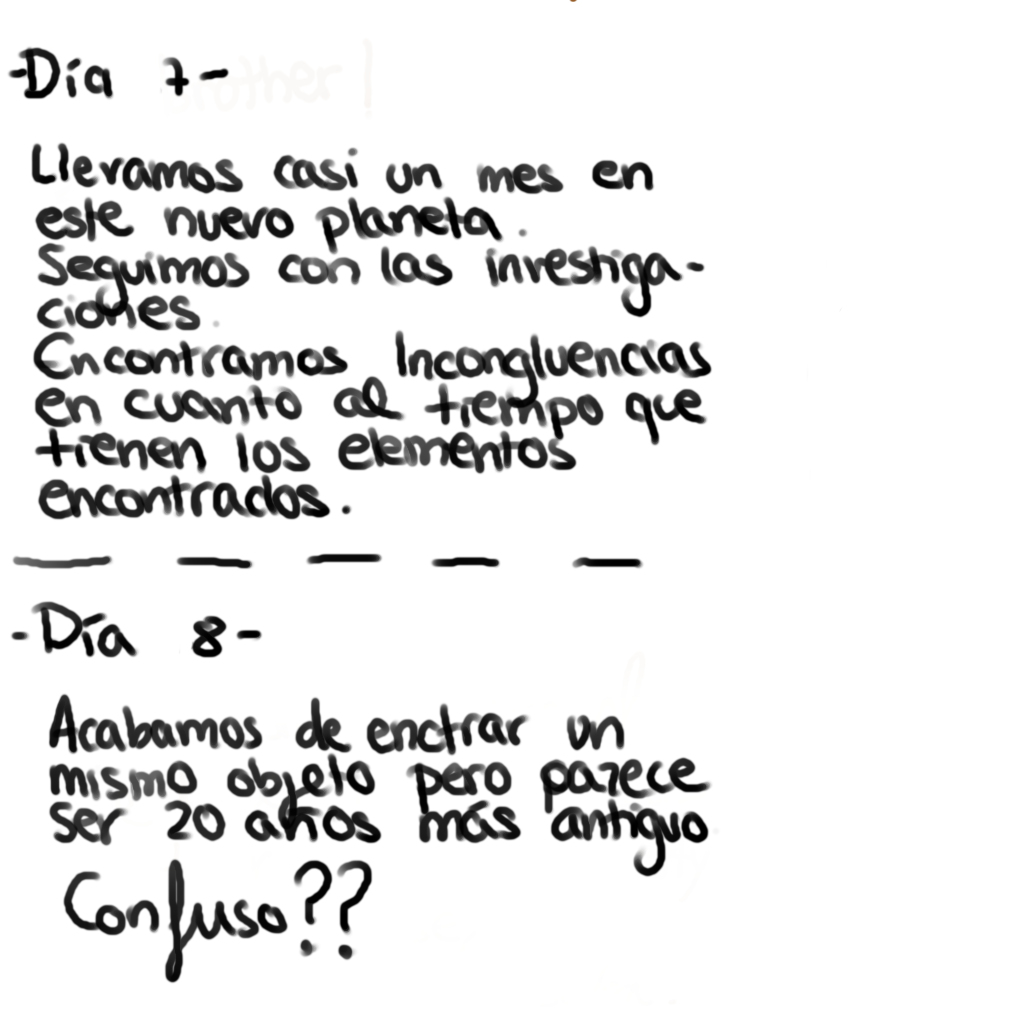 -Día 7-
Llevamos casi un mes en
este nuevo planeta.
Seguimos con las investiga-
ciones.
Encontramos Incongluencias
en cuanto al tiempo que
tienen los elementos
encontrados.
-Día 8-
Acabamos de enctrar un
mismo objeto pero parece
ser 20 años más antiguo
Confuso??